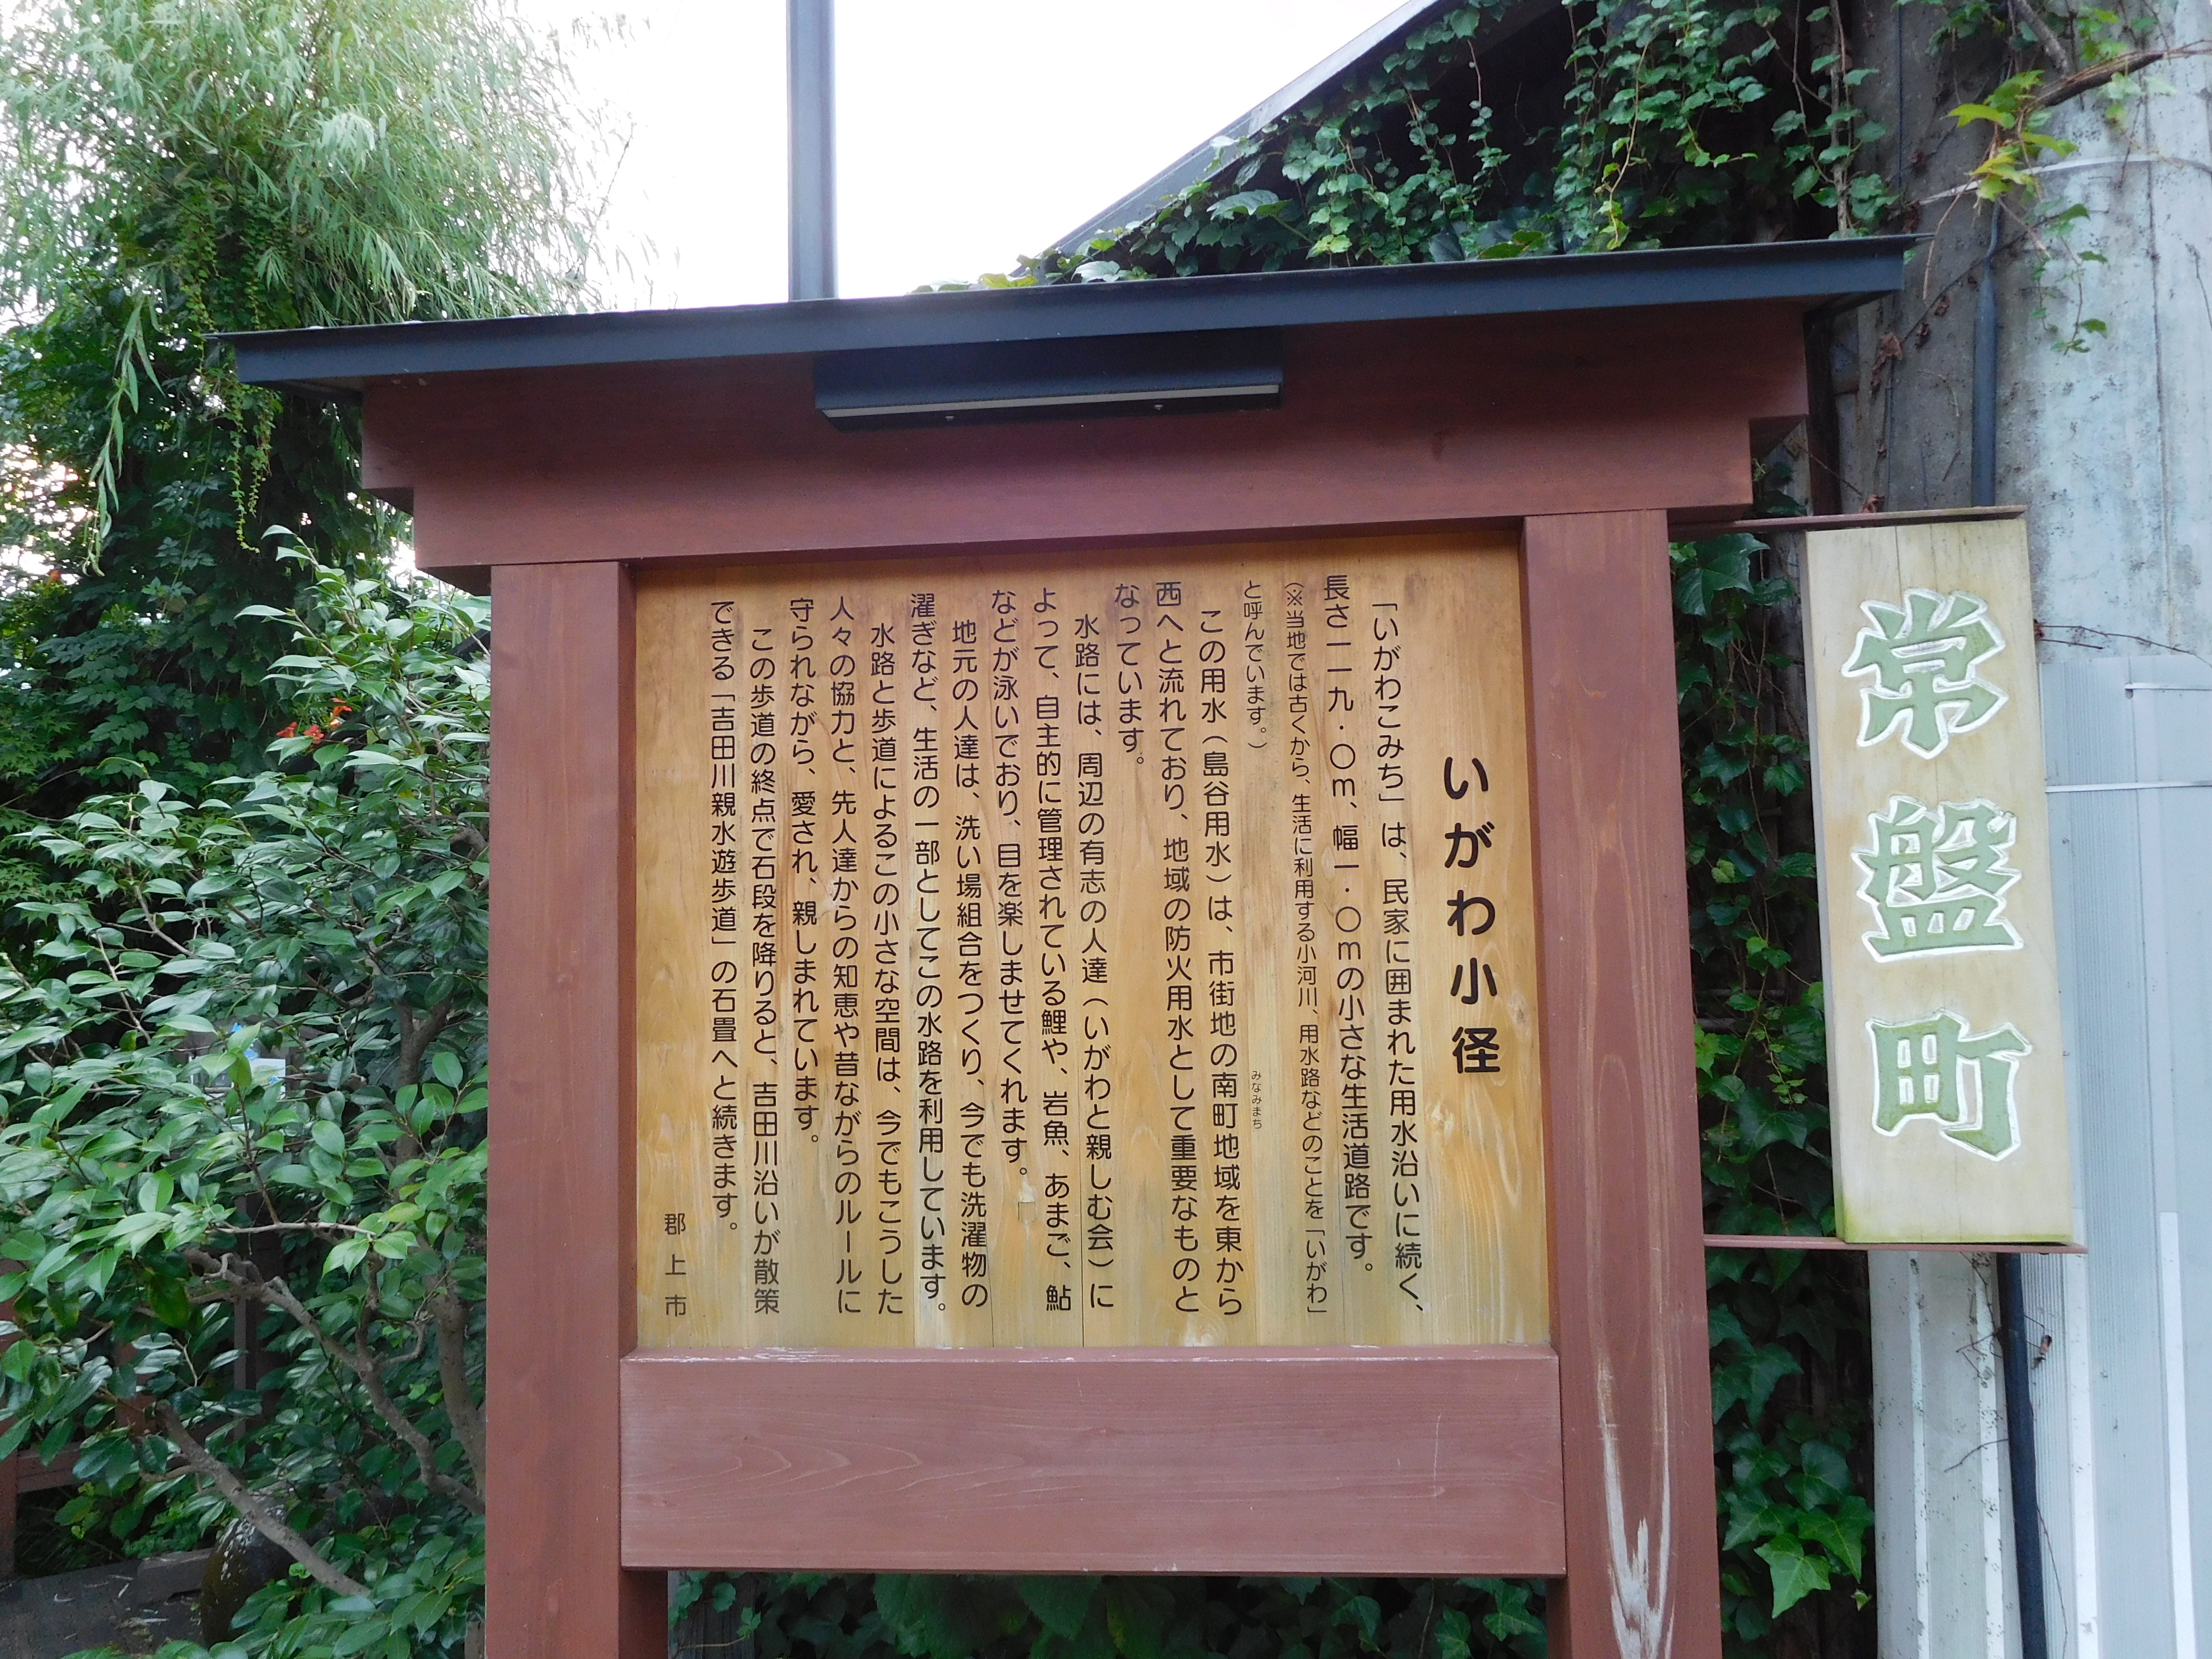 いがわ小径
「いがわこみち」は、民家に囲まれた用水沿いに続く、
長さ一一九・〇m、幅一・〇mの小さな生活道路です。
(※当地では古くから、生活に利用する小河川、用水路などのことを「いがわ」
と呼んでいます。)
この用水(島谷用水)は、市街地の南町地域を東から
みなみまち
西へと流れており、地域の防火用水として重要なものと
なっています。
水路には、周辺の有志の人達(いがわと親しむ会)に
よって、自主的に管理されている鯉や、岩魚、あまご、鮎
などが泳いでおり、目を楽しませてくれます。
地元の人達は、洗い場組合をつくり、今でも洗濯物の
濯ぎなど、生活の一部としてこの水路を利用しています。
水路と歩道によるこの小さな空間は、今でもこうした
人々の協力と、先人達からの知恵や昔ながらのルールに
守られながら、愛され、親しまれています。
この歩道の終点で石段を降りると、吉田川沿いが散策
できる「吉田川親水遊歩道」の石畳へと続きます。
郡上市
常盤町